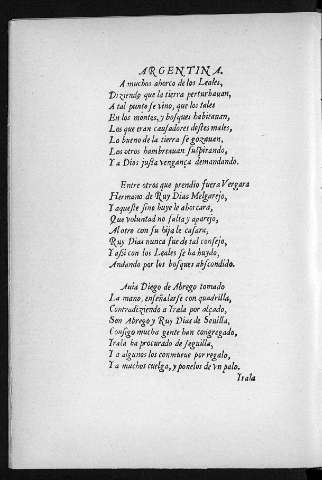 ARGENTINA.
A muchos ahorco de los Leales,
Diziendo que la tierra perturbauan,
A tal punto se vino, que los tales
En los montes, y bosques habitauan,
Los que eran causadores destes males,
Lo bueno de la tierra se gozauan,
Los otros hambreauan suspirando,
Y a Dios justa vengança demandando.
Entre otros que prendio fuera Vergara
Hermano de Ruy Dias Melgarejo,
Y aqueste sino huye le ahorcára,
Que voluntad no falta y aparejo,
Al otro con su hija le casara,
Ruy Dias nunca fue de tal consejo,
Y assi con los Leales se ha huydo,
Andando por los bosques abscondido.
Auia Diego de Abrego tomado
La mano, enseñalarse con quadrilla,
Contradiziendo a Yrala por alçado,
Son Abrego y Ruy Dias de Seuilla,
Consigo mucha gente han congregado,
Yrala ha procurado de seguilla,
Y a algunos los commueue por regalo,
Y a muchos cuelga, y ponelos de vn palo.
Yrala